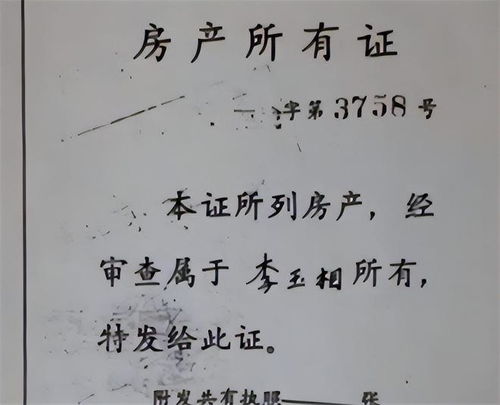 房产所有证
字第3758号
本证所列房产，经
审查属于李玉相所有，
特发给此证。
附发共有执照 张